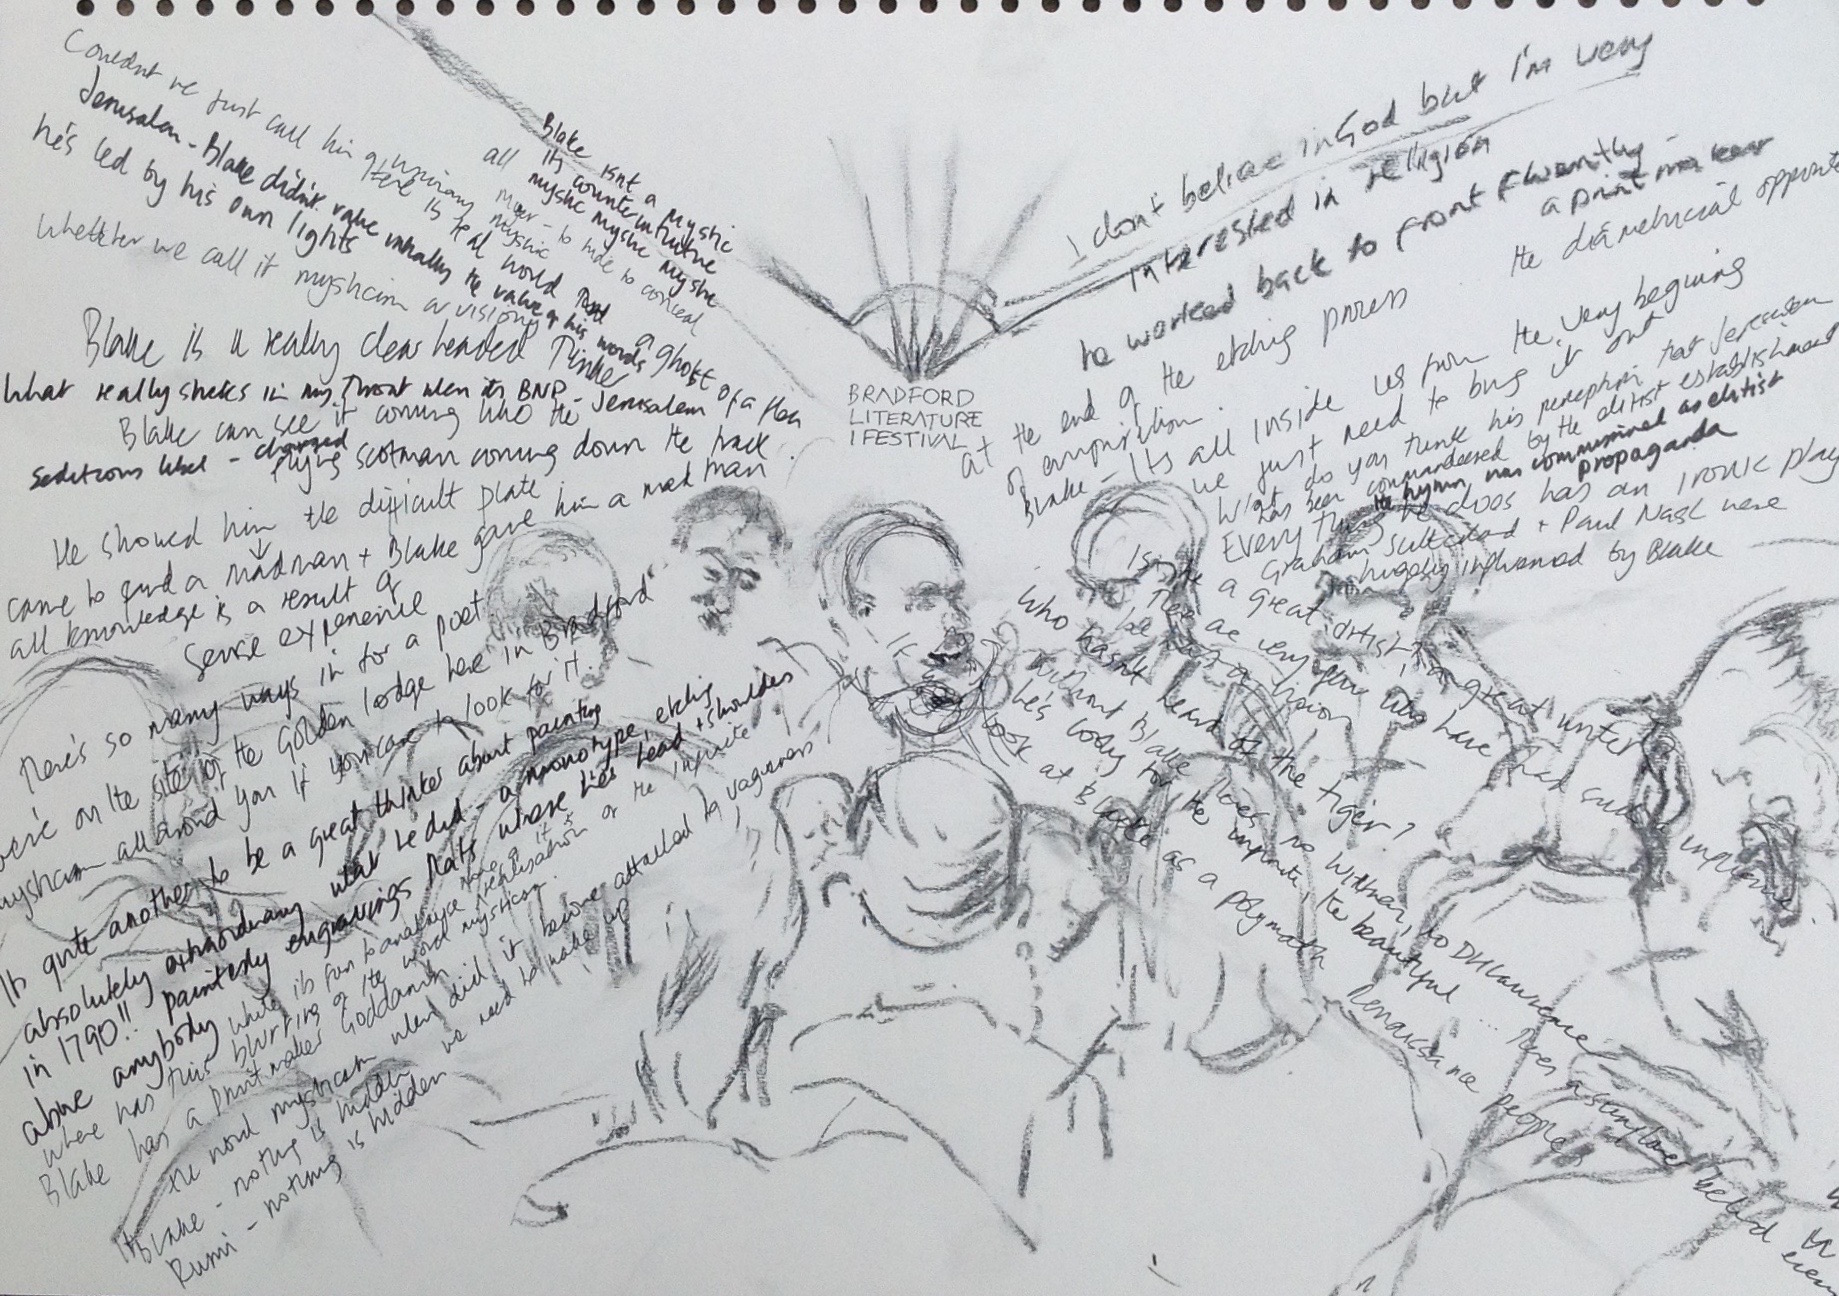 Couldnt we just call him a visionary mystic
Jerusalem - Blake didn't value virtually the value of his words
there is real world and a ghost of a flea
he's led by his own lights
Whether we call it mysticism or visions
Blake isnt a mystic
all its counterintuitive
mystic mystic mystic
to hide to conceal
Blake is a really clear headed Thinker
What really sticks in my Throat when its BNP - Jerusalem
Blake can see it coming like the
flying scotman coming down the track
Seditious libel - charged
He showed him the difficult plate
came to find a madman + Blake gave him a mad man
all knowledge is a result of
Sense experience
There's so many ways in for a poet
we're on the site of the Golden lodge here in Bradford
mysticism all around you if you care to look for it.
Its quite another to be a great thinker about painting
absolutely extraordinary what he did - a monotype, etching
in 1790!! painterly engravings that's where he's head + shoulders
above anybody
while its fun to analyse
realisation of the infinite
where has this blurring of the word mysticism
Blake has a printmaker Goddamit
the word mysticism when did it become attached to vagueness
we need to wake up
Blake - nothing is hidden
Rumi - nothing is hidden
BRADFORD
LITERATURE
FESTIVAL
I don't believe in God but I'm very
interested in religion
he worked back to front fluently -
a print maker
at the end of the etching process
the diametrical opposite
of composition.
Blake - its all inside us from the very begining
we just need to bring it out
What do you think his perception that Jerusalem
has been commandeered by the elitist establishment
The hymn was commissioned as elitist
propaganda
Everything he does has an ironic play
Graham Sutherland + Paul Nash were
hugely influenced by Blake
Is he a great artist or a great writer
There are very few who have had such a influence
Who hasn't heard of the tiger?
without Blake there's no Whitman, no DH Laurence
he's looking for the infinite, the beautiful ... There's a sunflower behind every
look at Blake as a polymath
Renaissance people